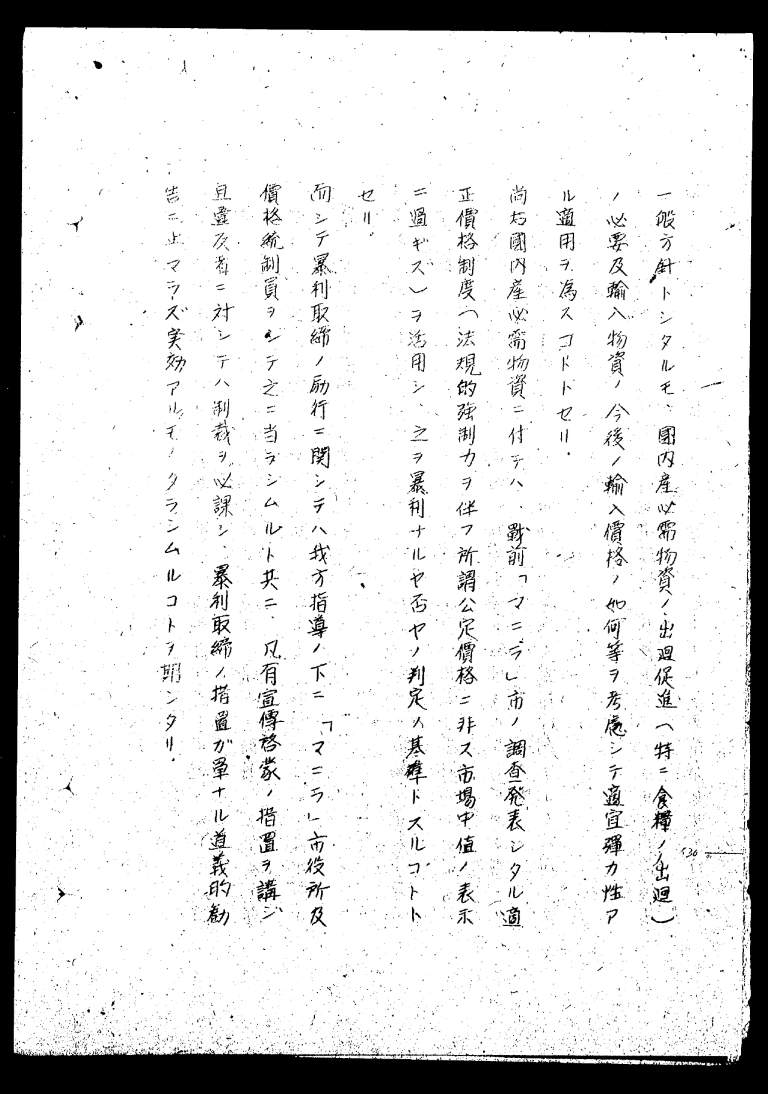 一般方針トシタルモ、國内産必需物資ノ出廻促進(特ニ食糧ノ出廻)
ノ必要及輸入物資ノ今後ノ輸入價格ノ如何等ヲ考慮シテ適宜彈力性ア
ル適用ヲ為スコトトセリ.
尚右國内産必需物資ニ付テハ、戰前「マニラ」市ノ調査発表シタル適
正價格制度(法規的強制力ヲ伴フ所謂公定價格ニ非ス市場中値ノ表示
ニ過ギズ)ヲ活用シ、之ヲ暴利ナルヤ否ヤノ判定ノ基準トスルコトト
セリ.
而シテ暴利取締ノ励行ニ関シテハ我方指導ノ下ニ「マニラ」市役所及
價格統制員ヲシテ之ニ当ラシムルト共ニ、凡有宣傳啓蒙ノ措置ヲ講ジ
且違反者ニ対シテハ制裁ヲ必課シ、暴利取締ノ措置ガ單ナル道義的勧
告ニ止マラズ実効アルモノタランムルコトヲ期シタリ.
530